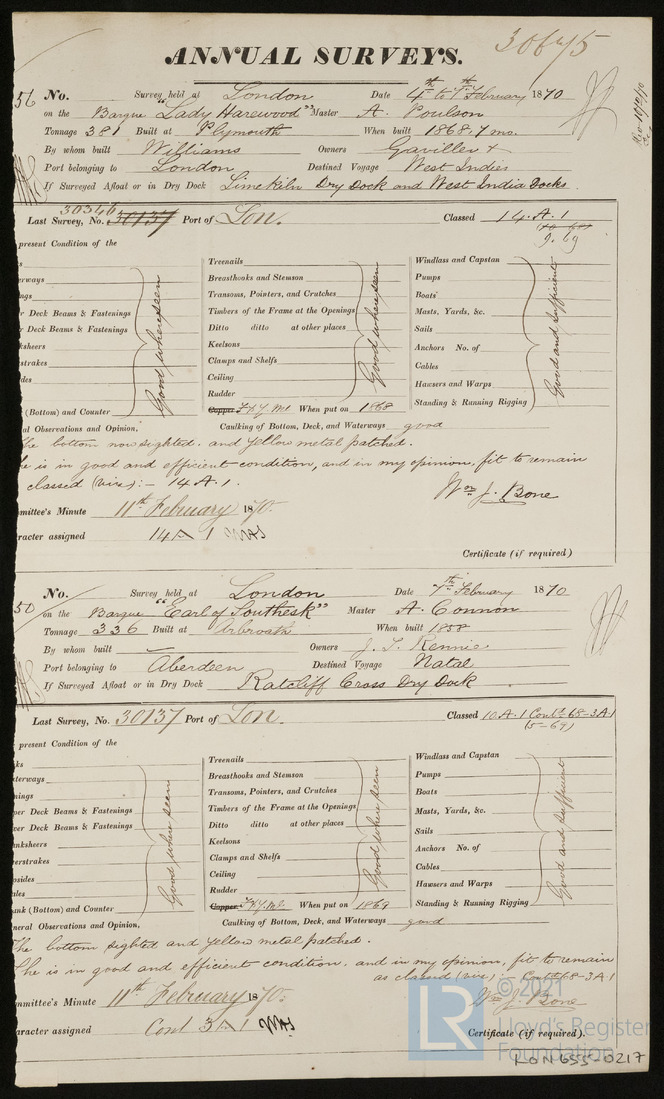 30645
ANNUAL SURVEYS.
56 No. Survey held at London Date 4th to 7th February 1870
on the Barque "Lady Harewood" Master A. Poulson
Tonnage 381 Built at Plymouth When built 1868.7 mo.
By whom built Williams Owners Gaviller &
Port belonging to London Destined Voyage West Indies
If Surveyed Afloat or in Dry Dock Limekiln Dry Dock and West India Docks.
30346
Last Survey, No. 30137 Port of Lon. Classed 14.A.1
9.69
present Condition of the
Treenails
Windlass and Capstan
Breasthooks and Stemson
Pumps
Transoms, Pointers, and Crutches
Boats
Deck Beams & Fastenings
Timbers of the Frame at the Openings
Masts, Yards, &c.
Deck Beams & Fastenings
Ditto ditto at other places
Sails
Keelsons
Anchors No. of
Clamps and Shelfs
Cables
Ceiling
Hawsers and Warps
Rudder
Standing & Running Rigging
Good where seen
Good where seen
Good and sufficient
(Bottom) and Counter
Copper F&Y.Ml When put on 1868
al Observations and Opinion,
Caulking of Bottom, Deck, and Waterways good
he bottom now sighted. and yellow metal patched.
he is in good and efficient condition, and in my opinion, fit to remain
classed (viz):- 14 A.1.
Wm. J. Bone
mmittee's Minute 11th February 1870.
racter assigned 14 A 1
Certificate (if required)
50 No. Survey held at London Date 7th February 1870
on the Barque "Earl of Southesk" Master A. Connon
Tonnage 336 Built at Arbroath When built 1858
By whom built Owners J. T. Rennie
Port belonging to Aberdeen Destined Voyage Natal
If Surveyed Afloat or in Dry Dock Ratcliff Cross Dry Dock
Last Survey, No. 30137 Port of Lon. Classed 10.A.1 Contd-68-3A.1
(5-69)
present Condition of the
Treenails
Windlass and Capstan
Breasthooks and Stemson
Pumps
Transoms, Pointers, and Crutches
Boats
per Deck Beams & Fastenings
Timbers of the Frame at the Openings
Masts, Yards, &c.
wer Deck Beams & Fastenings
Ditto ditto at other places
Sails
anksheers
Keelsons
Anchors No. of
erstrakes
Clamps and Shelfs
Cables
psides
Ceiling
Hawsers and Warps
ales
Rudder
Standing & Running Rigging
Good where seen
Good where seen
Good and sufficient
ank (Bottom) and Counter
Copper F&Y.Ml When put on 1869
neral Observations and Opinion,
Caulking of Bottom, Deck, and Waterways good
The bottom sighted and yellow metal patched.
She is in good and efficient condition. and in my opinion, fit to remain
as classed (viz):- Contd 68-3A.1
Wm. J. Bone
mmittee's Minute 11th February 1870.
aracter assigned Cont 3 A 1
Certificate (if required).
LR © 2021
Lloyd's Register
Foundation
LON655-0217